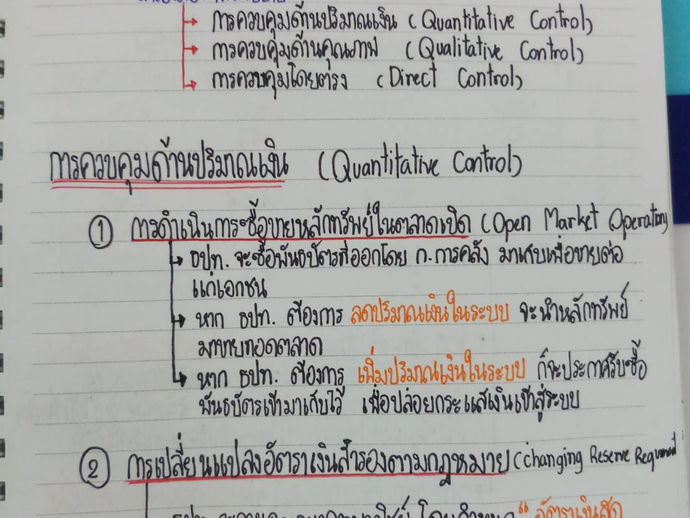 การควบคุมด้านปริมาณเงิน (Quantitative Control)
การควบคุมด้านคุณภาพ (Qualitative Control)
การควบคุมโดยตรง (Direct Control)
การควบคุมด้านปริมาณเงิน (Quantitative Control)
① การดำเนินการซื้อขายหลักทรัพย์ในตลาดเปิด (Open Market Operation)
ธปท. จะซื้อพันธบัตรที่ออกโดย ก.การคลัง มาเก็บเพื่อขายต่อ
แก่เอกชน
หาก ธปท. ต้องการ ลดปริมาณเงินในระบบ จะนำหลักทรัพย์
มาขายทอดตลาด
หาก ธปท. ต้องการ เพิ่มปริมาณเงินในระบบ ก็จะประกาศรับซื้อ
พันธบัตรเข้ามาเก็บไว้ เพื่อปล่อยกระแสเงินเข้าสู่ระบบ
② การเปลี่ยนแปลงอัตราเงินสำรองตามกฎหมาย (Changing Reserve